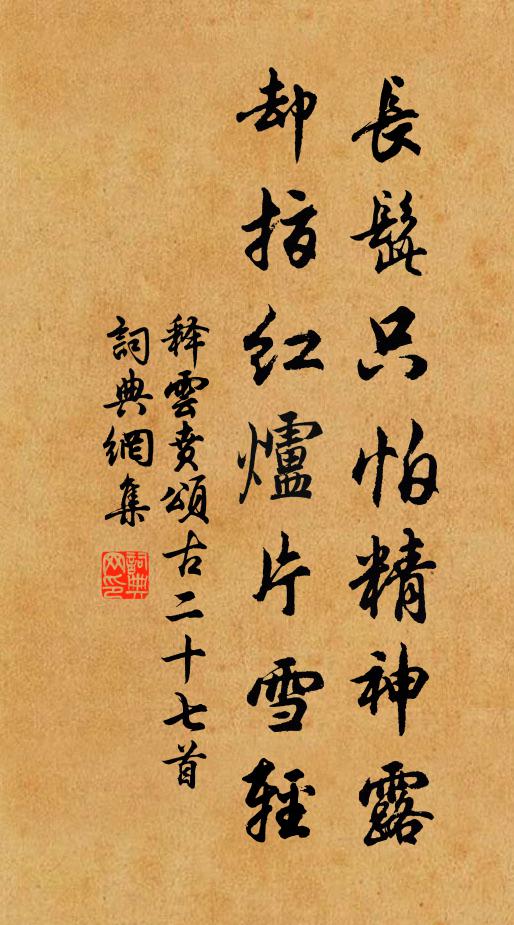 長髭只怕精神露
却指紅爐片雪輕
释雲賁頌古二十七首
詞典網集
詞典网印